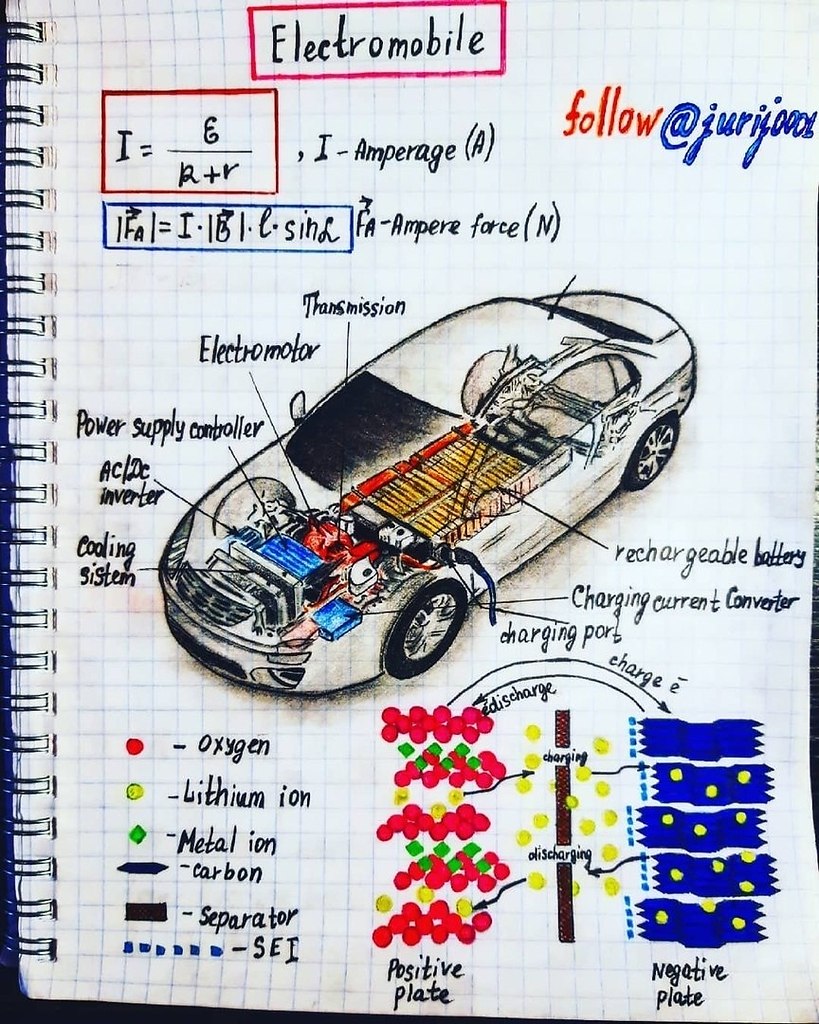 Electromobile
I = ε / R+r , I - Amperage (A)
follow @jurijooo1
|F⃗A| = I · |B⃗| · l · sinα F⃗A - Ampere force (N)
Transmission
Electromotor
Power supply controller
AC/Dc
inverter
Cooling
sistem
rechargeable battery
Charging current Converter
charging port
charge ē
ē discharge
charging
discharging
- Oxygen
- Lithium ion
- Metal ion
- carbon
- Separator
- SEI
Positive
plate
Negative
plate